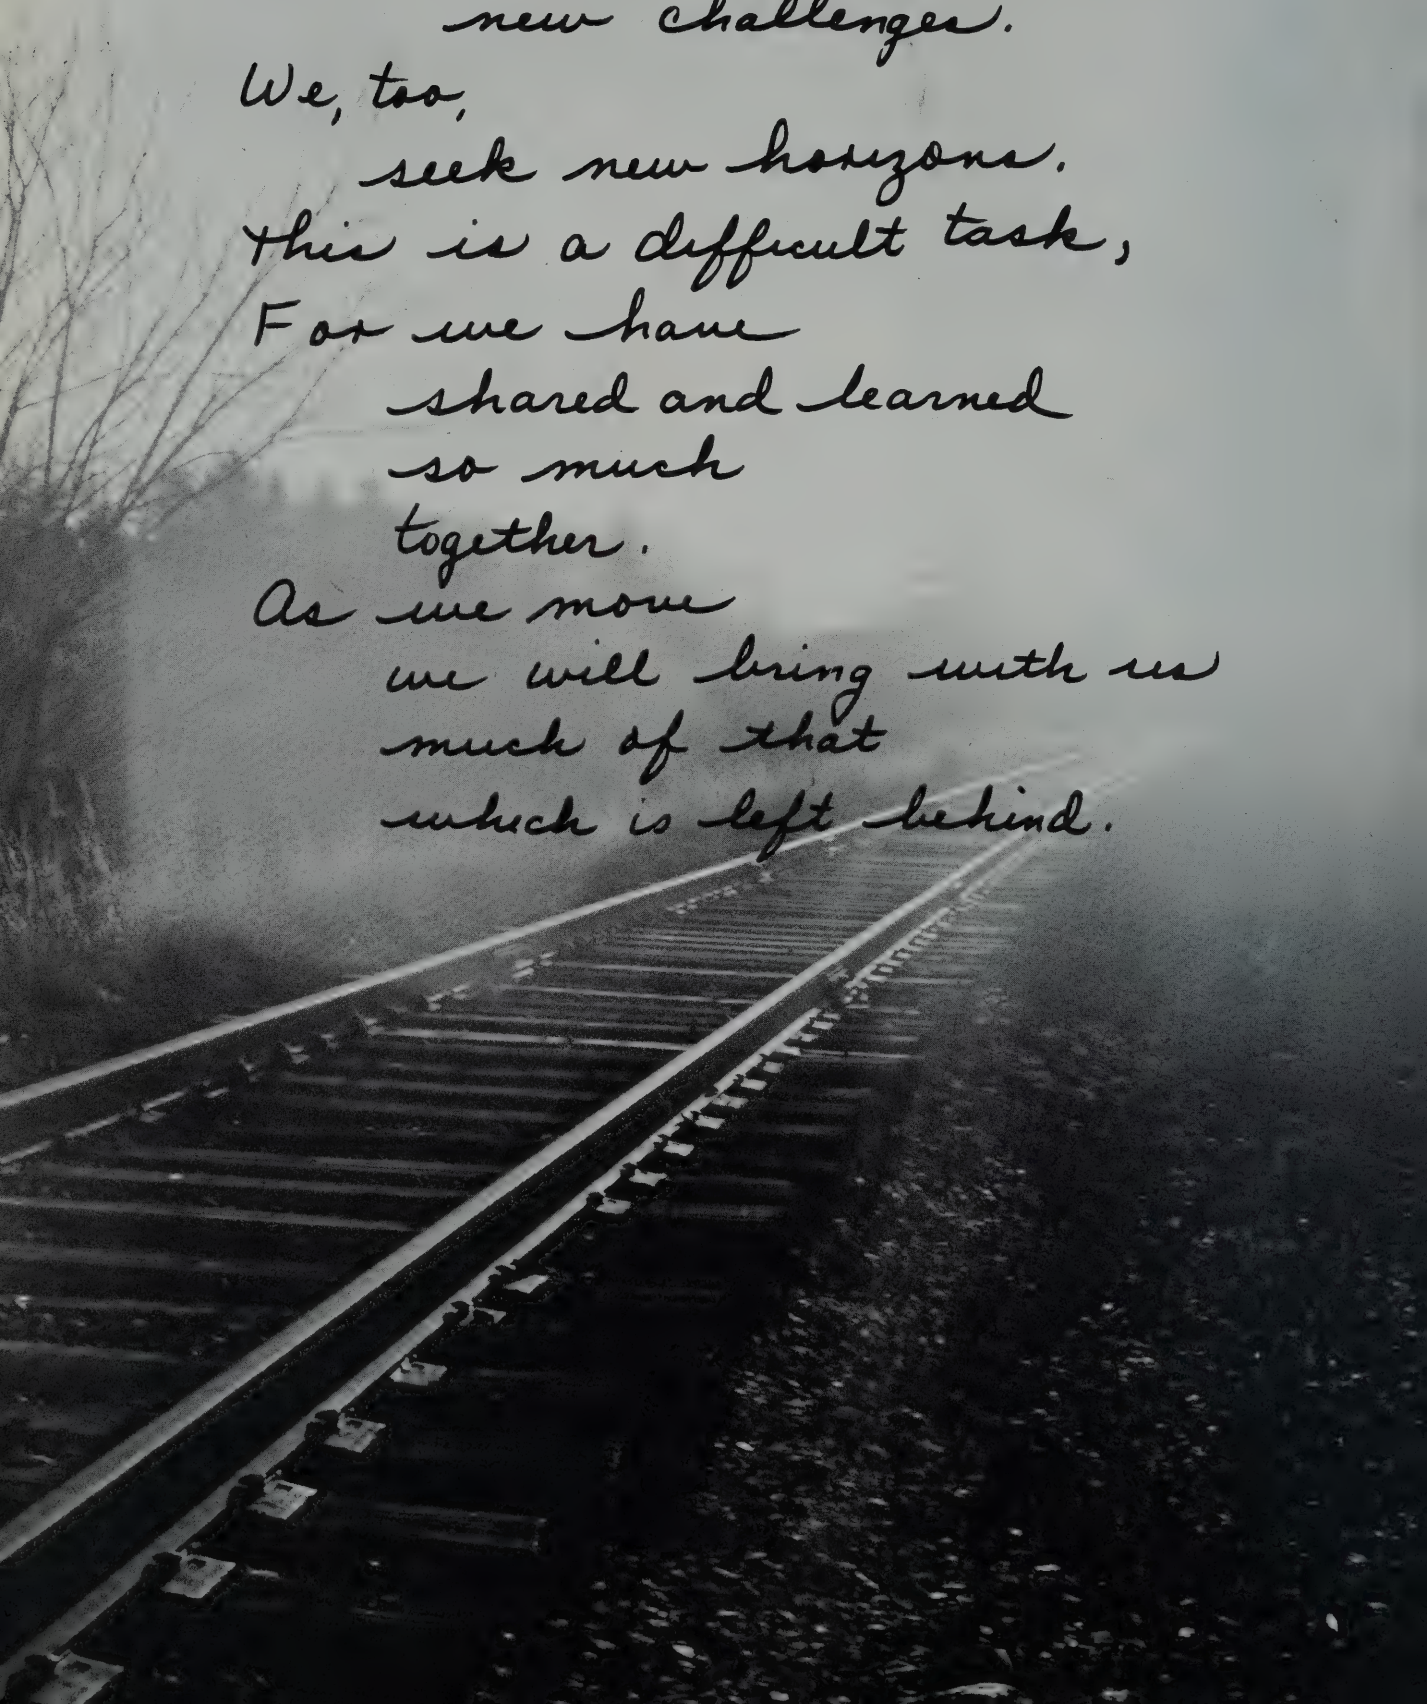 new challenges.
We, too,
seek new horizons.
This is a difficult task,
For we have
shared and learned
so much
together.
As we move
we will bring with us
much of that
which is left behind.